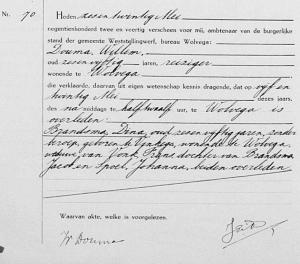 Nr. 70
Heden, zesentwintig Mei
negentienhonderd twee en veertig verscheen voor mij, ambtenaar van de burgerlijke
stand der gemeente Weststellingwerf, bureau Wolvega:
Douma, Willem,
oud zesenvijftig jaren, reiziger
wonende te Wolvega
die verklaarde, daarvan uit eigen wetenschap kennis dragende, dat op vijf en
twintig Mei dezes jaars,
des na middags te half twaalf uur, te Wolvega is
overleden:
Brandsma, Dina, oud zesenvijftig jaren, zonder
beroep, geboren te Vinkega, wonende te Wolvega
weduwe van Vork, Frans, dochter van Brandsma
Jacob en Spoel, Johanna, beiden overleden
Waarvan akte, welke is voorgelezen.
W Douma